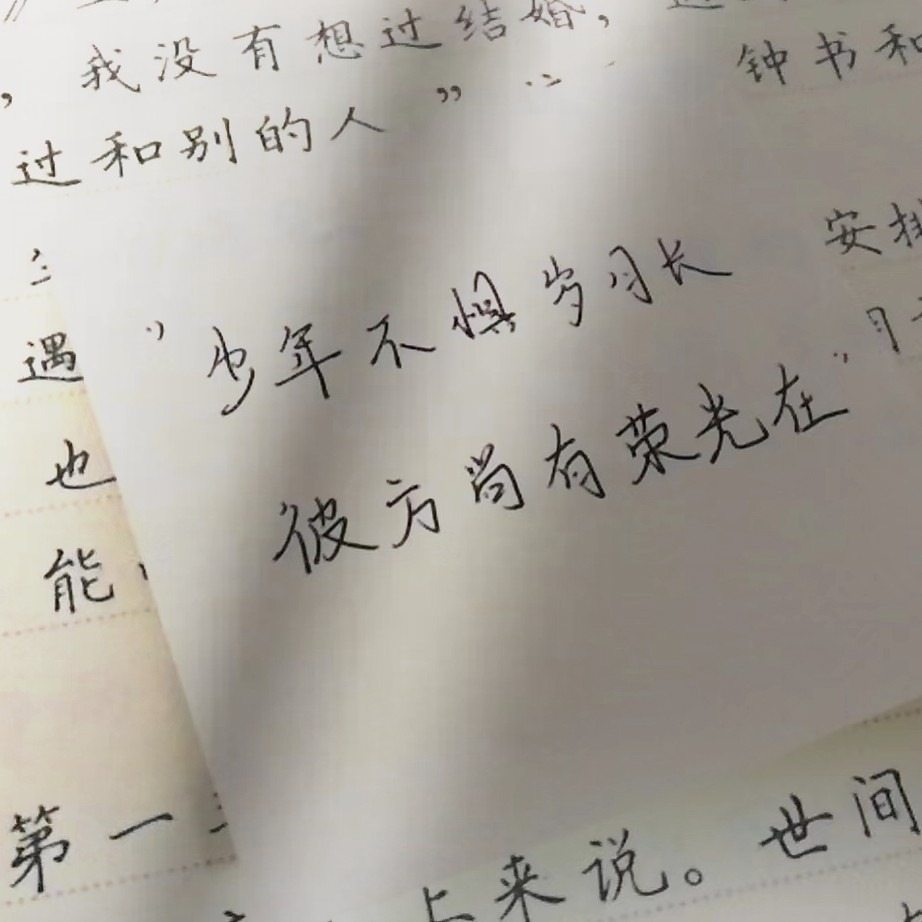 ，我没有想过结婚，
过和别的人”
钟书和
安排
遇
"少年不惧岁月长
彼方尚有荣光在"
月
也
能
第一
上来说。世间